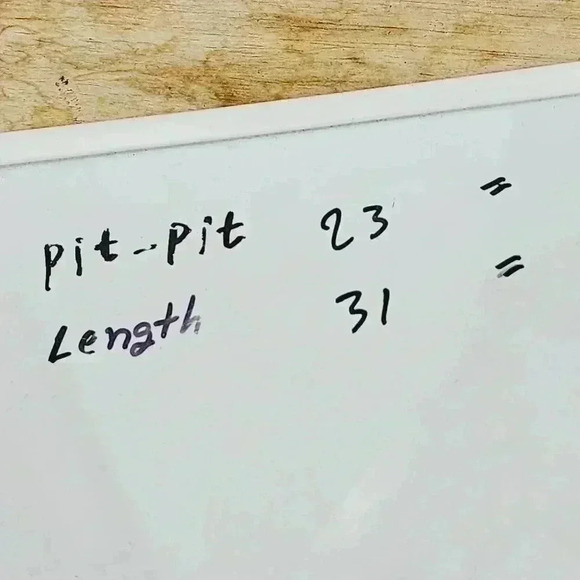 pit-pit 23 "
Length 31 "